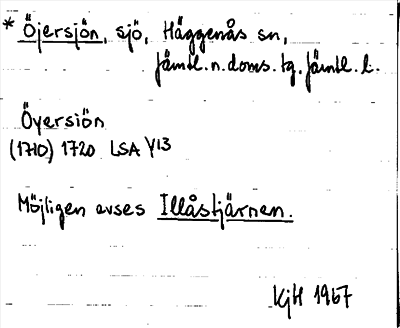 * Öjersjön, sjö, Häggenås sn,
Jämtl. n. doms. tg, Jämtl. l.
Öyersiön
(1710) 1720 LSA Y13
Möjligen avses Illåstjärnen.
KjH 1967